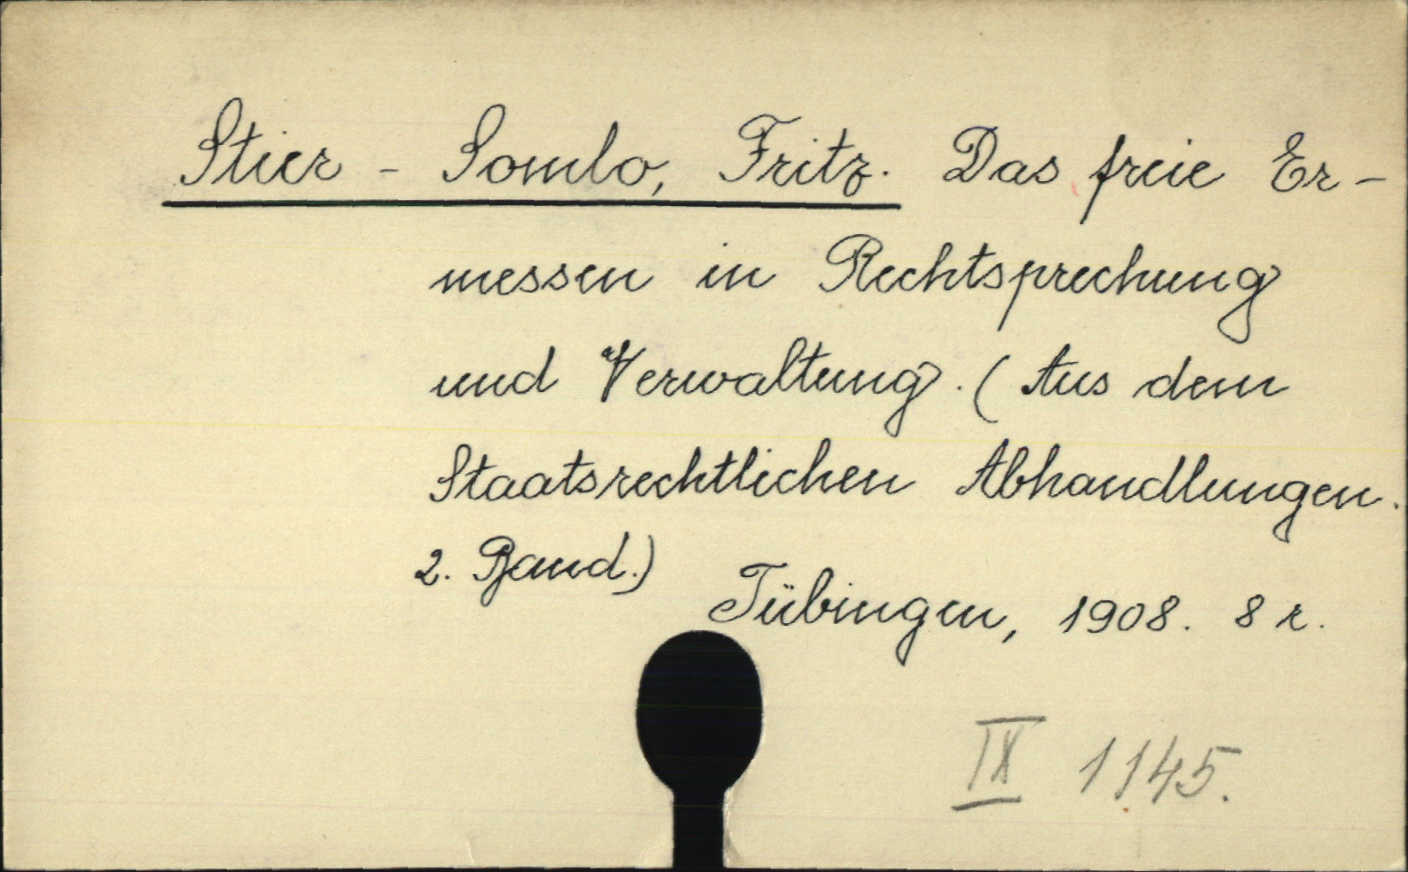 Stier - Somlo, Fritz. Das freie Er-
messen in Rechtsprechung
und Verwaltung. (Aus dem
Staatsrechtlichen Abhandlungen.
2. Band.)
Tübingen, 1908. 8 r.
IX 1145.